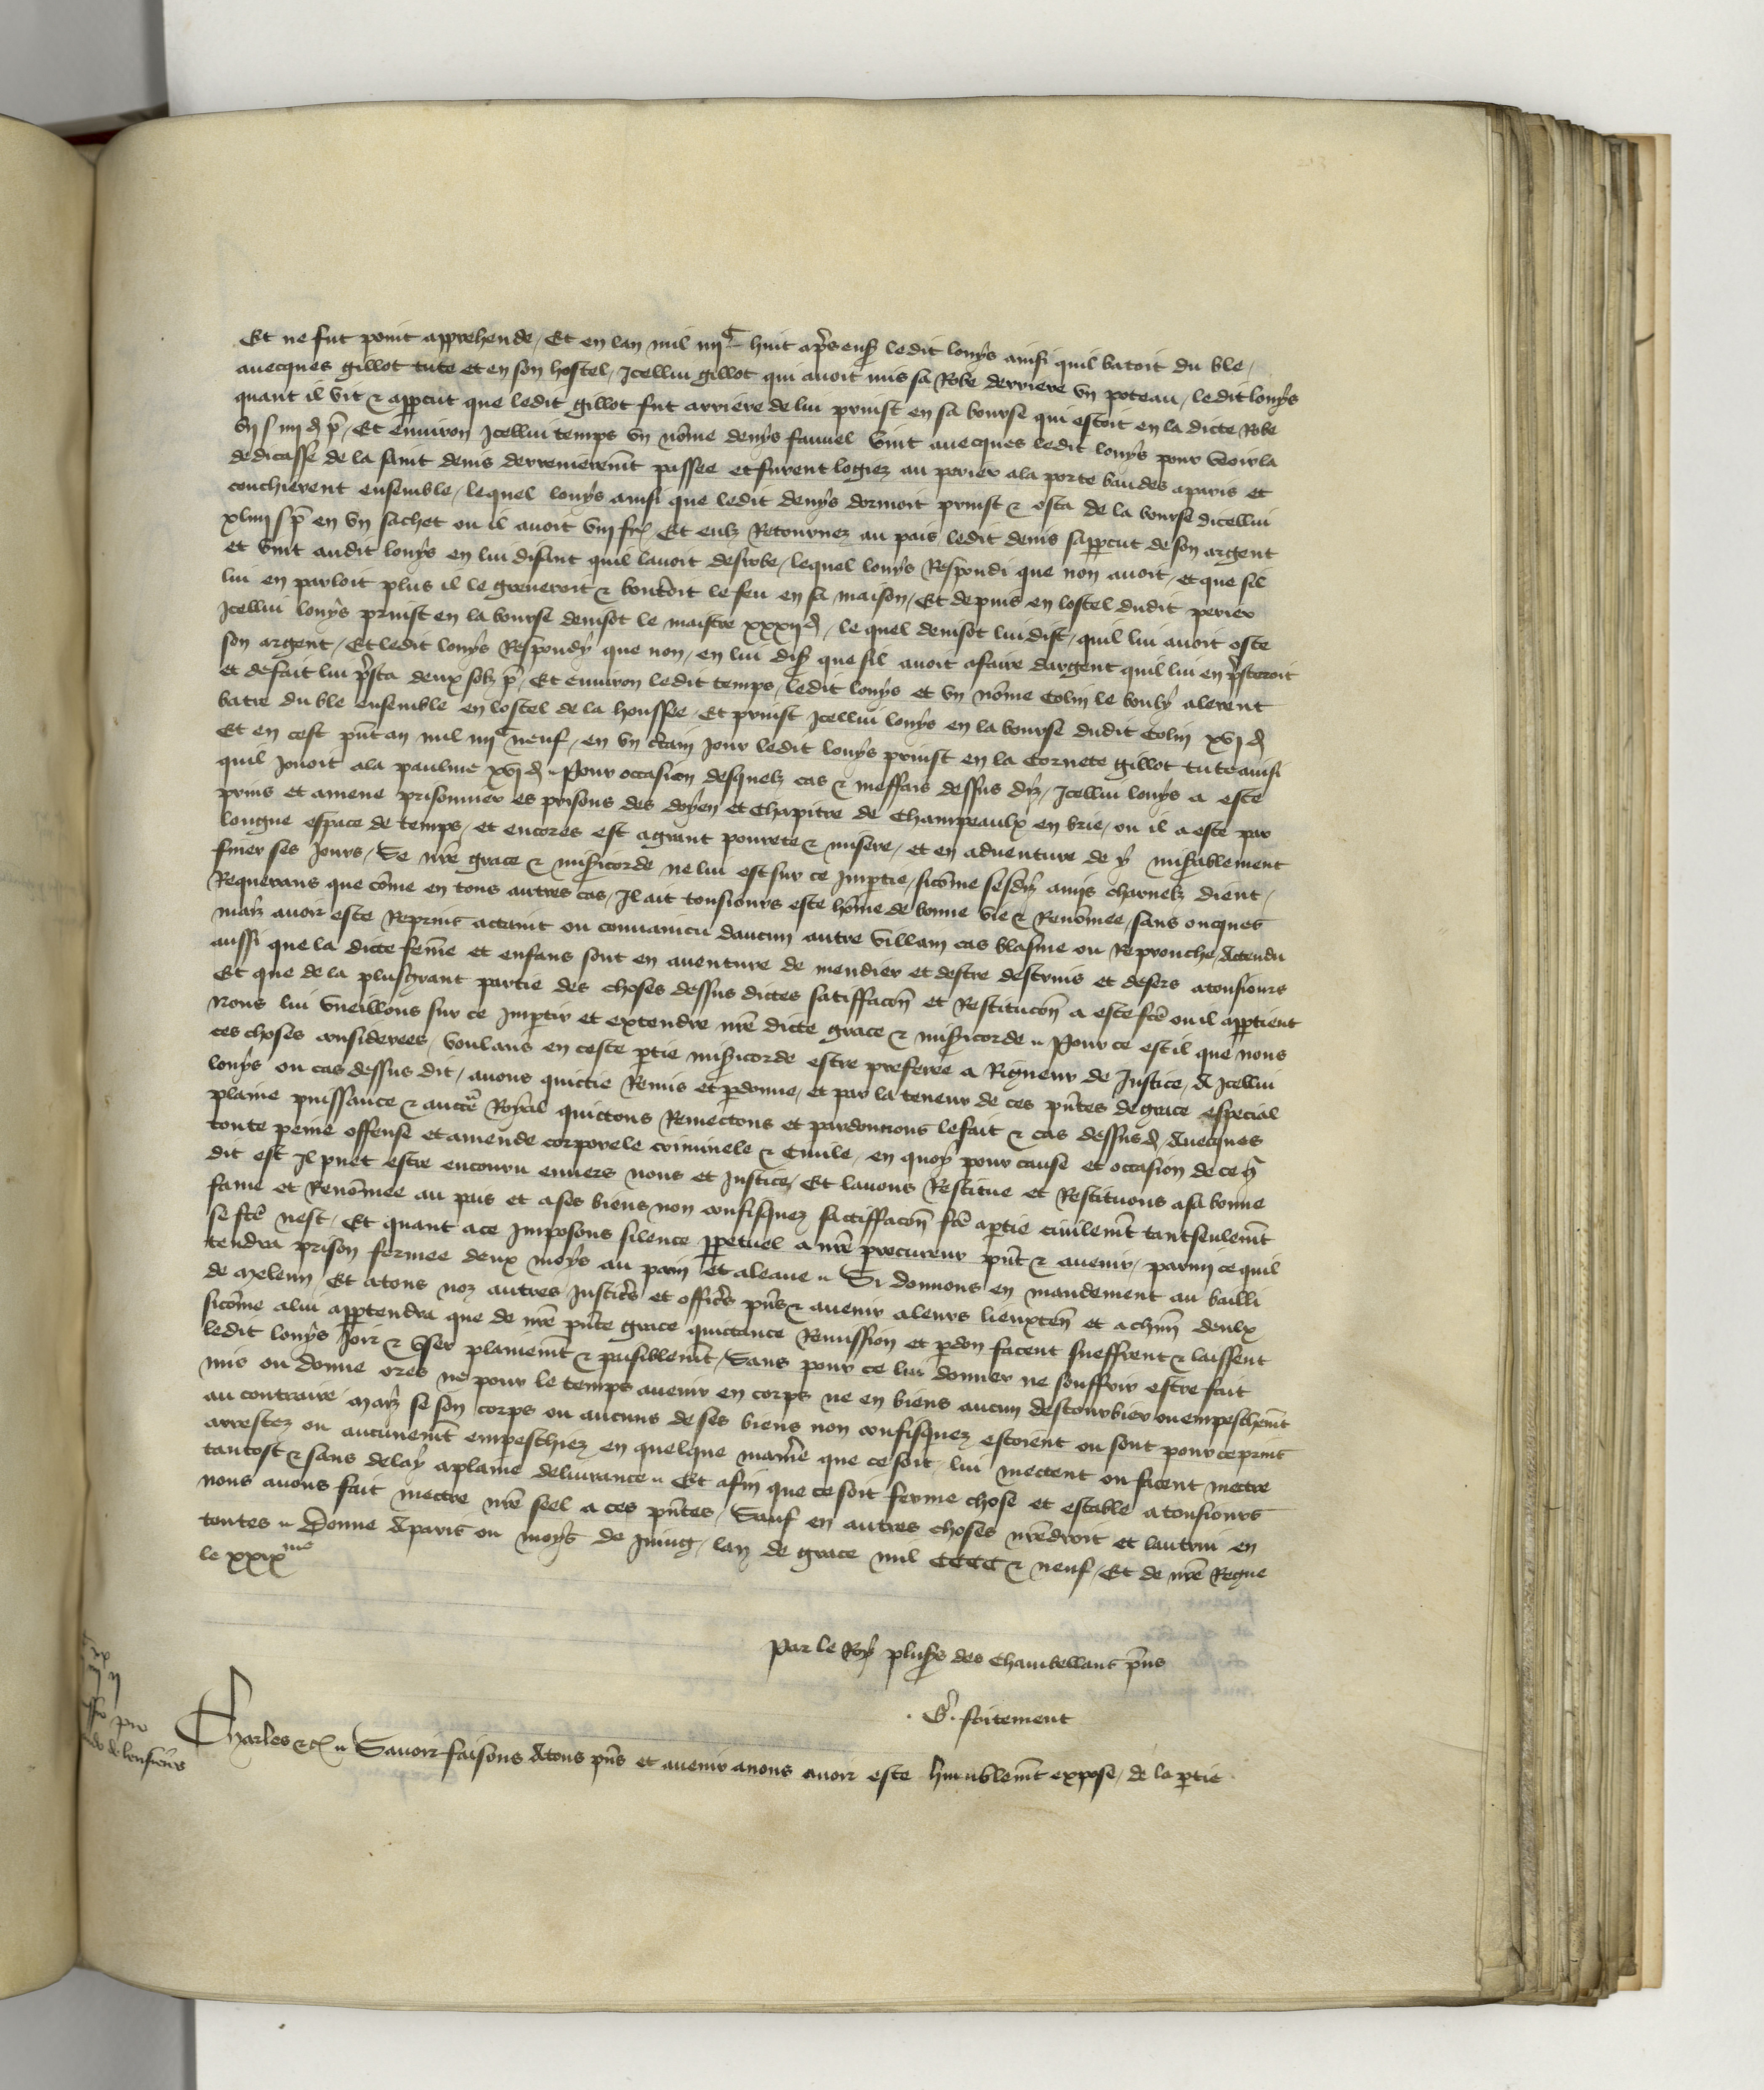 Et ne fut point apprehende / Et en lan mil iiijC huit apres ensẜ ledit loys ainsi quil batoit du ble /
auecques gillot tute et en son hostel / Icellui gillot qui auoit mis sa Robe derriere vn poteau / ledit loys
quant il vit & apperceut que ledit gillot fut arriere de lui prinst en sa bourse qui estoit en la dicte Robe
vij s iiij d p̄ / Et enuiron Icellui temps vn nōme denys fauuel vint auecques ledit loys pour veoir la
dedicasse de la saint denis derrenieremt̄ passee et furent logiez au perier ala porte baudes aparis et
couchierent ensemble / lequel loys ainsi que ledit denys dormoit prinst & osta de la bourse dicellui
xliiij s p̄ en vn sachet ou il auoit viij fr̄ Et eulz Retournez au pais ledit denis sapperceut de son argent
et vint audit loys en lui disant quil lauoit desrobe / lequel loys Respondi que non auoit / et que sil
lui en parloit plus il le greueroit & bouteroit le feu en sa maison / Et depuis en lostel dudit perier
Icellui loys prinst en la bourse denisot le maistre xxxij d / le quel denisot lui dist / quil lui auoit oste
son argent / Et ledit loys Respondy que non / en lui disẜ que sil auoit afaire dargent quil lui en presteroit
et defait lui presta deux solz p̄ / Et enuiron ledit temps / ledit loys et vn nōme Colin le bouly alerent
batre du ble ensemble en lostel de la houssee / Et prinst Icellui loys en la bourse dudit Colin xvj d
Et en cest pn̄t an mil iiijC neuf / en vn certain Jour ledit loys prinst en la Cornete gillot tute ainsi
quil Jouoit ala paulme xvj d .. Pour occasion desquelz cas & meffais dessus diz / Icellui loys a este
prins et amene prisonnier es prisons des doyen et Chapitre de Champeaulx en brie / ou il a este par
longue espace de temps / et encores est agrant pourete & misere / et en aduenture de y miserablement
finer ses Jours / Se nr̄e grace & misericorde ne lui est sur ce Impartie / sicōme sesdiz amis charnelz dient /
Requerans que cōme en tous autres cas / Il ait tousiours este hōme de bonne vie & Renōmee / sans oncques
maiz auoir este Reprins actaint ou conuaincu daucun autre villain cas blasme ou Reprouche / Attendu
aussi que la dicte fēme et enfans sont en auenture de mendier et destre destruis et desers atousiours
Et que de la plusgrant partie des choses dessus dictes satiffacon̄ et Restitucon̄ a este fc̄e ou il appartient
Nous lui vueillons sur ce Impartir et extendre nr̄e dicte grace & misericorde .. Pour ce est il que nous
ces choses considerees / voulans en ceste partie misericorde estre preferee a Rigueur de Justice / A Icellui
loys ou cas dessus dit / auons quictie Remis et pardonne / et par la teneur de ces pn̄tes de grace especial
plaine puissance & aucte Royal quictons Remectons et pardonnons le fait & cas dessusd / Auecques
toute peine offense et amende corporele criminele & Ciuile / en quoy pour cause et occasion de ce q̄
dit est Il puet estre encouru enuers nous et Justice / Et lauons Restitue et Restituons asa bonne
fame et Renōmee au pais et ases biens non confisquez sattiffacon̄ fc̄e apartie ciuilemt̄ tant seulemt̄
se fc̄e nest / Et quant ace Imposons silence perpetuel a nr̄e procureur pn̄t & auenir / parmi ce quil
tendra prison fermee deux moys au pain et aleaue .. Si donnons en mandement au bailli
de meleun Et atous noz autres Justiciers et officiers pn̄s & auenir aleurs lieuxten̄ et a chūn deulx
sicōme alui appartendra que de nr̄e pn̄te grace quictance Remission et pardon facent sueffrent & laissent
ledit loys Joir & vser plainemt̄ & paisiblemt̄ / Sans pour ce lui donner ne souffrir estre fait
mis ou donne ores ne pour le temps auenir en corps ne en biens aucun destourbier ou empeschemt̄
au contraire Maiz se son corps ou aucuns de ses biens non confisquez estoient ou sont pour ce prins
arrestez ou aucunemt̄ empeschiez en quelque maniere que ce soit / lui mectent ou facent mectre
tantost & sans delay aplaine deliurance .. Et afin que ce soit ferme chose et estable atousiours
nous auons fait mectre nr̄e seel a ces pn̄tes / Sauf en autres choses nr̄e droit et lautrui en
toutes .. Donne Aparis ou moys de Juing / lan de grace mil CCCC & neuf / Et de nr̄e Regne
le xxixme
Par le Roy plusrs des Chambellans pn̄s
. G. faitement
Charles &c̄ .. Sauoir faisons Atous pn̄s et auenir anous auoir este humblemt̄ expose / de la partie